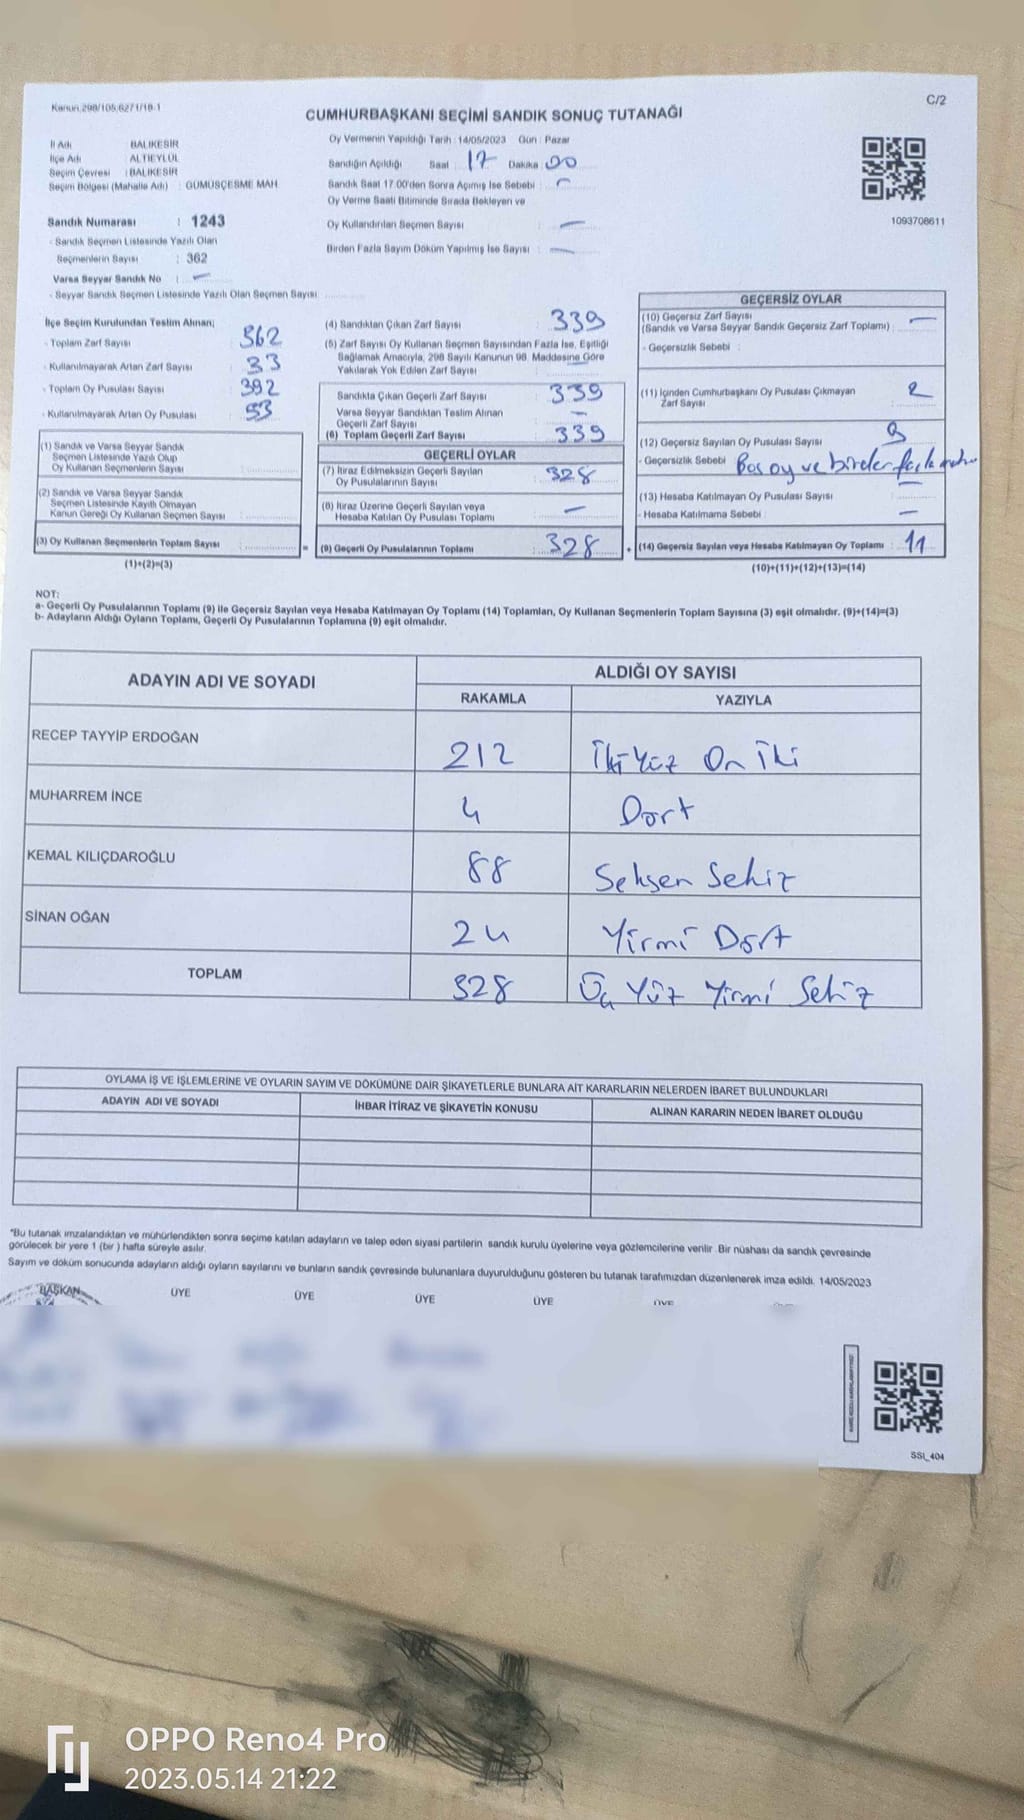 Kanun.298/105,6271/18-1
C/2
CUMHURBAŞKANI SEÇİMİ SANDIK SONUÇ TUTANAĞI
İl Adı BALIKESİR
İlçe Adı ALTIEYLÜL
Seçim Çevresi : BALIKESİR
Seçim Bölgesi (Mahalle Adı) : GÜMÜŞÇEŞME MAH
Sandık Numarası : 1243
- Sandık Seçmen Listesinde Yazılı Olan
Seçmenlerin Sayısı : 362
Varsa Seyyar Sandık No : —
- Seyyar Sandık Seçmen Listesinde Yazılı Olan Seçmen Sayısı
Oy Vermenin Yapıldığı Tarih : 14/05/2023 Gün : Pazar
Sandığın Açıldığı Saat 17 Dakika 00
Sandık Saat 17.00'den Sonra Açımış İse Sebebi : —
Oy Verme Saati Bitiminde Sırada Bekleyen ve
Oy Kullandırılan Seçmen Sayısı : —
Birden Fazla Sayım Döküm Yapılmış İse Sayısı : —
1093708611
İlçe Seçim Kurulundan Teslim Alınan;
- Toplam Zarf Sayısı 362
- Kullanılmayarak Artan Zarf Sayısı 33
- Toplam Oy Pusulası Sayısı 392
- Kullanılmayarak Artan Oy Pusulası 53
(1) Sandık ve Varsa Seyyar Sandık
Seçmen Listesinde Yazılı Olup
Oy Kullanan Seçmenlerin Sayısı
(2) Sandık ve Varsa Seyyar Sandık
Seçmen Listesinde Kayıtlı Olmayan
Kanun Gereği Oy Kullanan Seçmen Sayısı
(3) Oy Kullanan Seçmenlerin Toplam Sayısı =
(1)+(2)=(3)
(4) Sandıktan Çıkan Zarf Sayısı : 339
(5) Zarf Sayısı Oy Kullanan Seçmen Sayısından Fazla İse, Eşitliği
Sağlamak Amacıyla, 298 Sayılı Kanunun 98. Maddesine Göre
Yakılarak Yok Edilen Zarf Sayısı —
Sandıkta Çıkan Geçerli Zarf Sayısı : 339
Varsa Seyyar Sandıktan Teslim Alınan
Geçerli Zarf Sayısı —
(6) Toplam Geçerli Zarf Sayısı : 339
GEÇERLİ OYLAR
(7) İtiraz Edilmeksizin Geçerli Sayılan
Oy Pusulalarının Sayısı 328
(8) İtiraz Üzerine Geçerli Sayılan veya
Hesaba Katılan Oy Pusulası Toplamı —
(9) Geçerli Oy Pusulalarının Toplamı : 328 +
GEÇERSİZ OYLAR
(10) Geçersiz Zarf Sayısı
(Sandık ve Varsa Seyyar Sandık Geçersiz Zarf Toplamı) : —
- Geçersizlik Sebebi :
(11) İçinden Cumhurbaşkanı Oy Pusulası Çıkmayan
Zarf Sayısı 2
(12) Geçersiz Sayılan Oy Pusulası Sayısı 9
- Geçersizlik Sebebi Boş oy ve birden fazla
(13) Hesaba Katılmayan Oy Pusulası Sayısı —
- Hesaba Katılmama Sebebi : —
(14) Geçersiz Sayılan veya Hesaba Katılmayan Oy Toplamı : 11
(10)+(11)+(12)+(13)=(14)
NOT:
a- Geçerli Oy Pusulalarının Toplamı (9) ile Geçersiz Sayılan veya Hesaba Katılmayan Oy Toplamı (14) Toplamları, Oy Kullanan Seçmenlerin Toplam Sayısına (3) eşit olmalıdır. (9)+(14)=(3)
b- Adayların Aldığı Oyların Toplamı, Geçerli Oy Pusulalarının Toplamına (9) eşit olmalıdır.
ADAYIN ADI VE SOYADI
ALDIĞI OY SAYISI
RAKAMLA YAZIYLA
RECEP TAYYİP ERDOĞAN 212 İki Yüz On İki
MUHARREM İNCE 4 Dört
KEMAL KILIÇDAROĞLU 88 Seksen Sekiz
SİNAN OĞAN 24 Yirmi Dört
TOPLAM 328 Üç Yüz Yirmi Sekiz
OYLAMA İŞ VE İŞLEMLERİNE VE OYLARIN SAYIM VE DÖKÜMÜNE DAİR ŞİKAYETLERLE BUNLARA AİT KARARLARIN NELERDEN İBARET BULUNDUKLARI
ADAYIN ADI VE SOYADI İHBAR İTİRAZ VE ŞİKAYETİN KONUSU ALINAN KARARIN NEDEN İBARET OLDUĞU
"Bu tutanak imzalandıktan ve mühürlendikten sonra seçime katılan adayların ve talep eden siyasi partilerin sandık kurulu üyelerine veya gözlemcilerine verilir. Bir nüshası da sandık çevresinde
görülecek bir yere 1 (bir ) hafta süreyle asılır.
Sayım ve döküm sonucunda adayların aldığı oyların sayılarını ve bunların sandık çevresinde bulunanlara duyurulduğunu gösteren bu tutanak tarafımızdan düzenlenerek imza edildi. 14/05/2023
BAŞKAN ÜYE ÜYE ÜYE ÜYE ÜYE
SSI_404
OPPO Reno4 Pro
2023.05.14 21:22